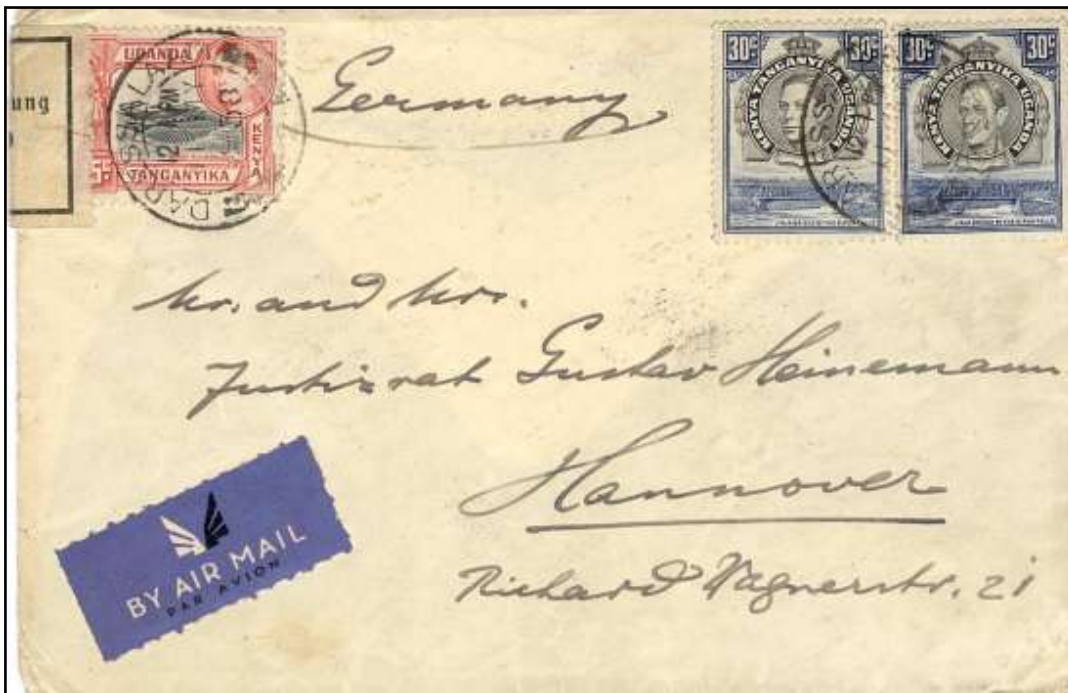 ung
UGANDA
KENYA
TANGANYIKA
DAR-ES-SALA
12
PM
Germany
30c 30c
KENYA TANGANYIKA UGANDA
30c 30c
KENYA TANGANYIKA UGANDA
Mr. and Mrs.
Justizrat Gustav Heinemann
Hannover
Richard Wagnerstr. 21
BY AIR MAIL
PAR AVION